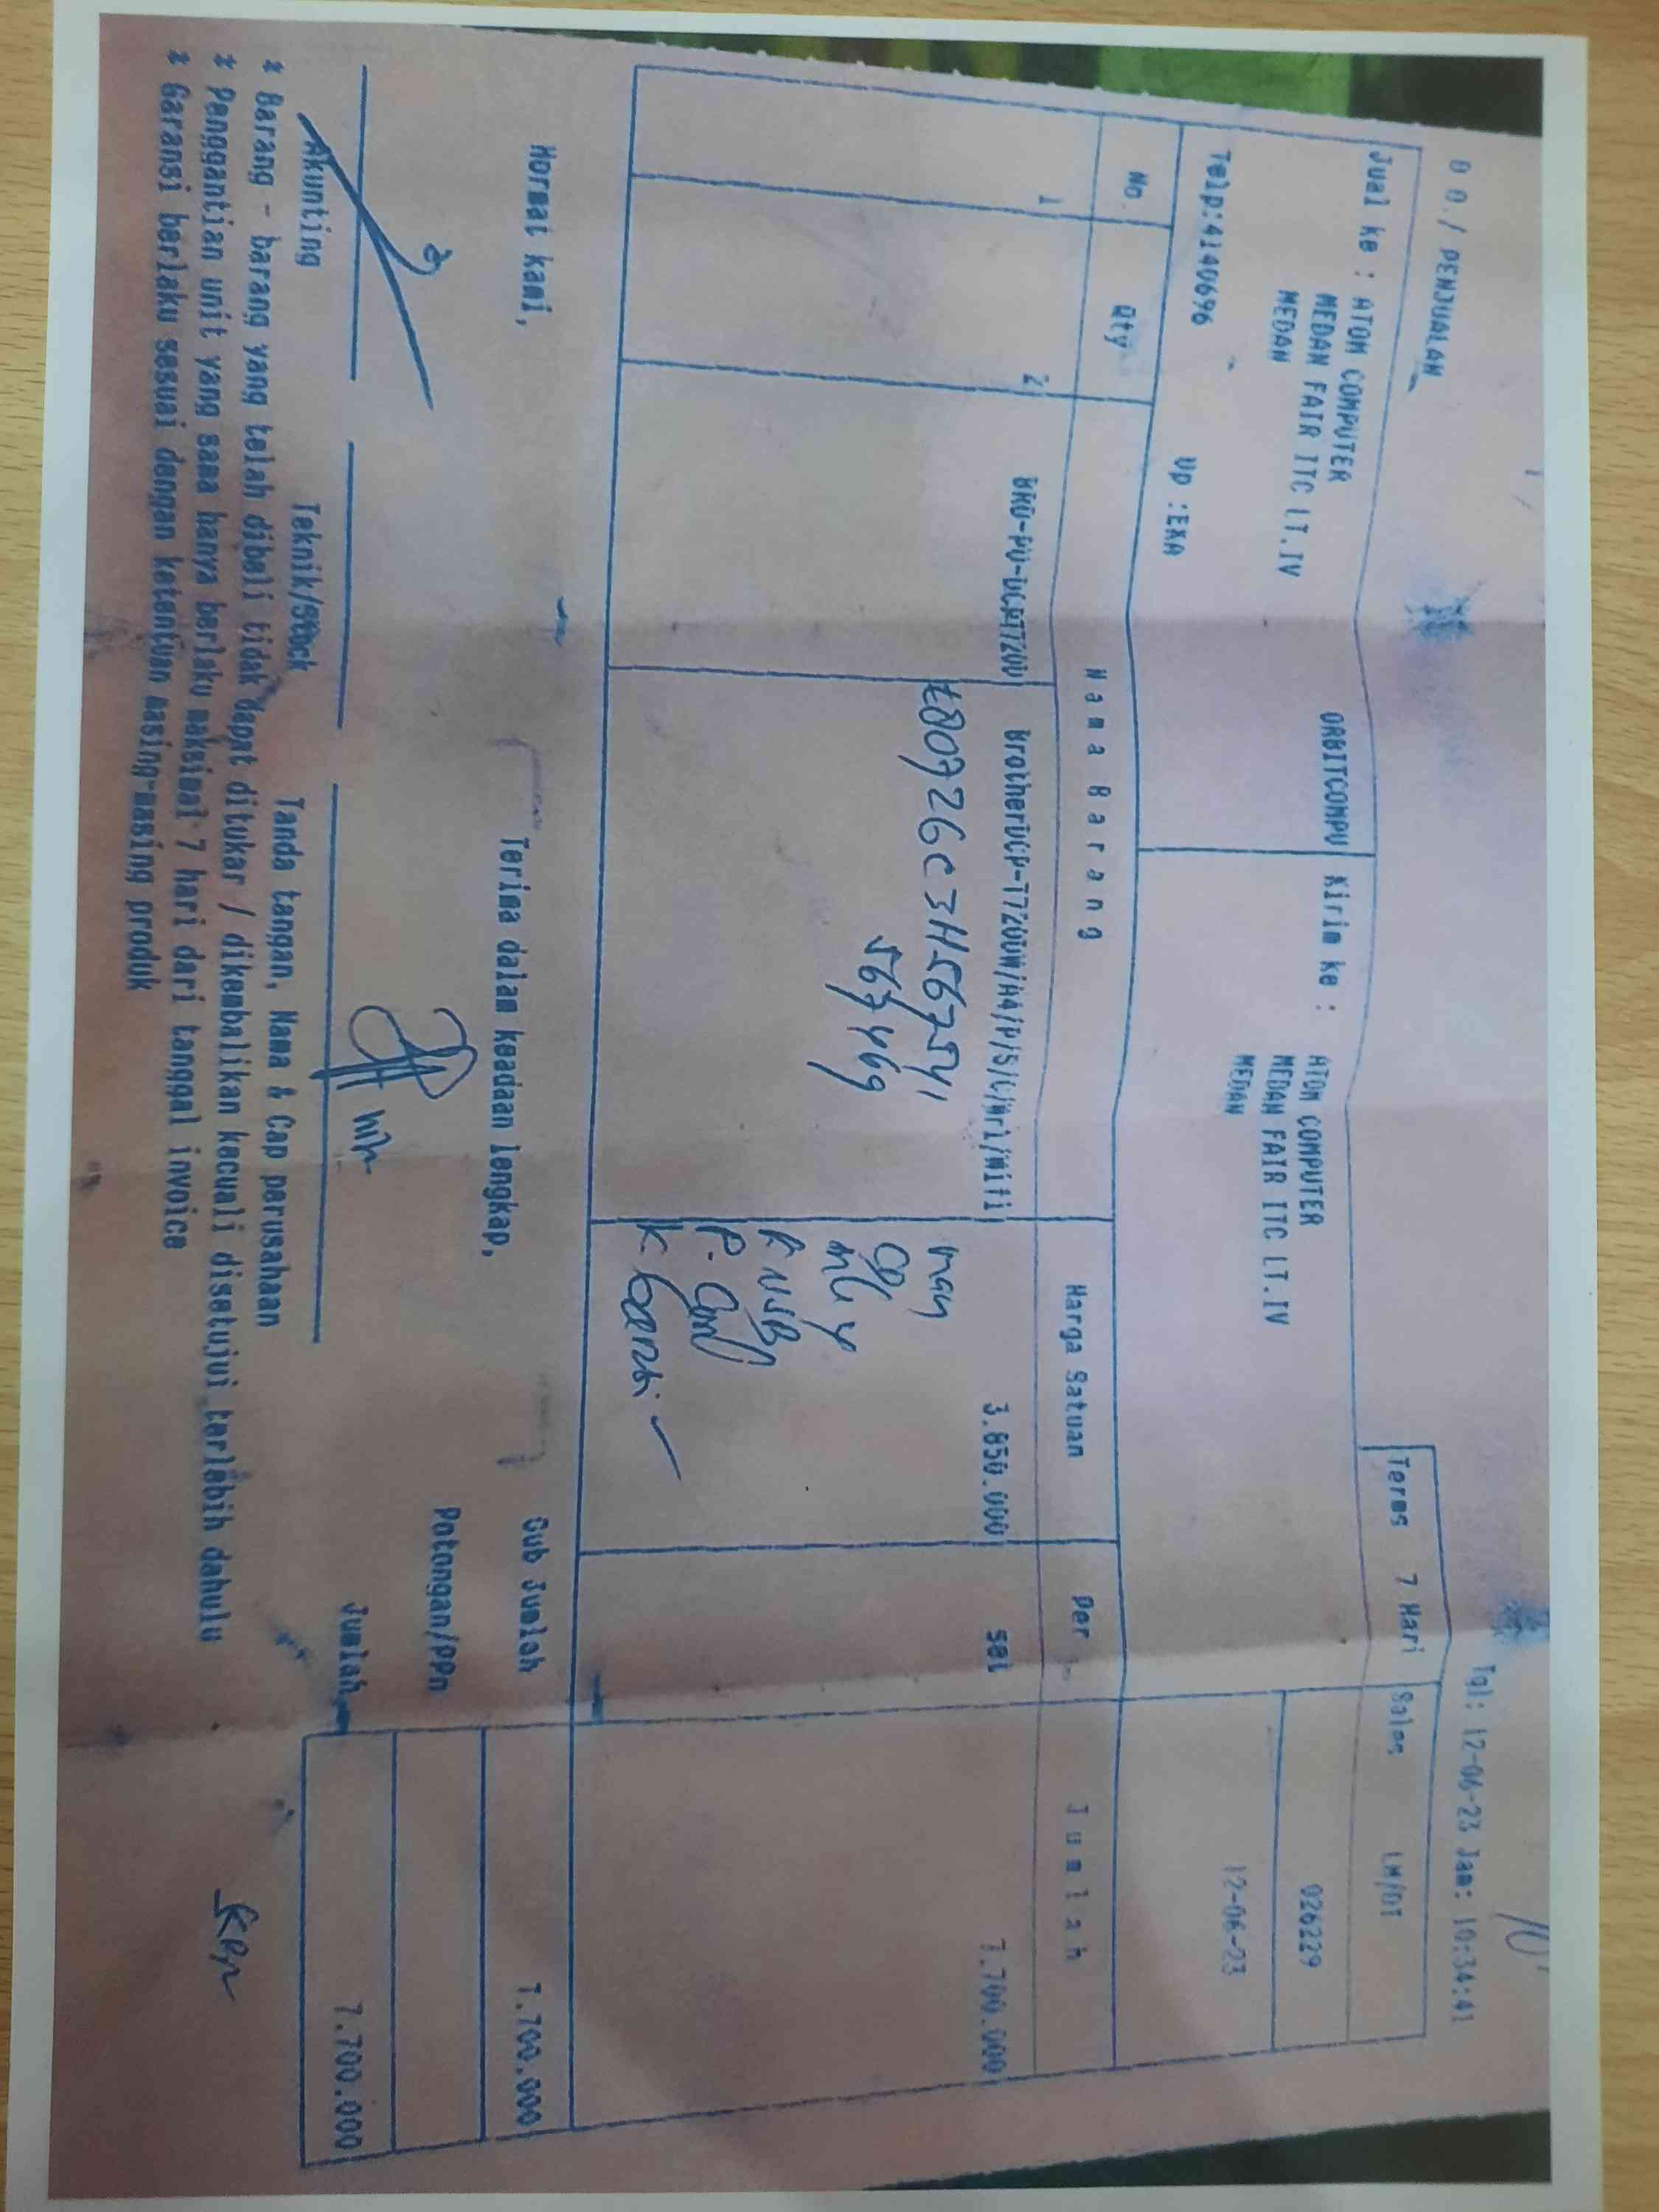 D O./ PENJUALAN
Tgl: 12-06-23 Jam: 10:34:41
Terms 7 Hari Sales LM/DI
Jual ke : ATOM COMPUTER ORBITCOMPU Kirim ke : ATOM COMPUTER 026229
MEDAN FAIR ITC LT.IV MEDAN FAIR ITC LT.IV
MEDAN MEDAN 12-06-23
Telp:4140696 Up :EKA
No. Qty Nama Barang Harga Satuan Per Jumlah
1 2 3.850.000 set 7.700.000
567469
R USB
Hormat kami, Terima dalam keadaan lengkap, Sub Jumlah 7.700.000
Potongan/PPn
Jumlah 7.700.000
Akunting Teknik/Stock Tanda tangan, Nama & Cap perusahaan
* Barang - barang yang telah dibeli tidak dapat ditukar / dikembalikan kecuali disetujui terlebih dahulu
* Penggantian unit yang sama hanya berlaku maksimal 7 hari dari tanggal invoice
* Garansi berlaku sesuai dengan ketentuan masing-masing produk